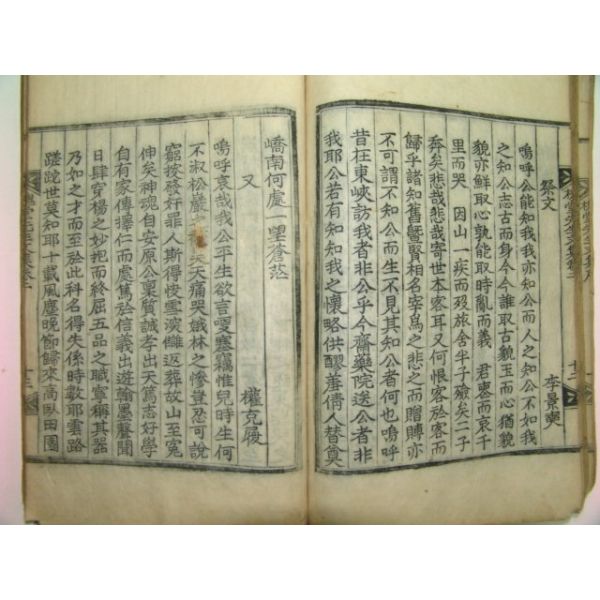 祭文
李景奭
嗚呼公能知我我亦知公而人之知公不如我
之知公志古而身今今誰取古貌玉而心猶貌
貌亦鮮取心孰能取時亂而義 君喪而哀千
里而哭 因山一疾而歿旅舍半子殮矣二子
奔矣悲哉悲哉寄世本客耳又何恨客於客而
歸乎諸知舊曁賢相名宰爲之悲之而贈賻亦
不可謂不知公而生不見其知公者何也嗚呼
昔在東峽訪我者非公乎今齋藥院送公者非
我耶公若有知知我之懷略供醪羞倩人替奠
嶠南何處一望蒼茫
又
權克履
嗚呼哀哉我公平生欲言哽塞竊惟兒時生何
不淑松嚴
天痛哭娥林之慘豈忍可說
窮按發奸罪人斯得快雪深讎返葬故山至寃
伸矣神魂自安原公稟質誠孝出天篤志好學
自有家傳擇仁而處篤於信義出遊翰墨聲聞
日肆穿楊之妙抱而終屈五品之職寧稱其器
乃如之才而至於此科名得失係時數耶雲路
蹉跎世莫知耶十載風塵晩節歸來高臥田園